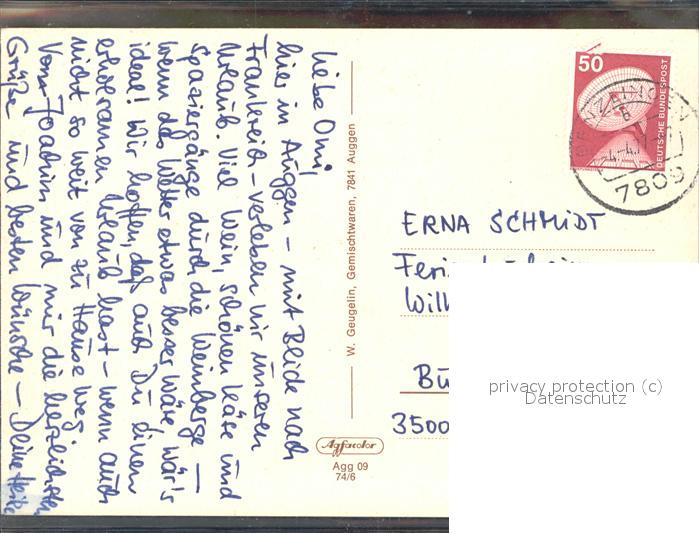 Liebe Omi,
hier in Auggen – mit Blick nach
Frankreich – verleben wir unseren
Urlaub. Viel Wein, schönen Käse und
Spaziergänge durch die Weinberge –
wenn das Wetter etwas besser wäre, wär's
ideal! Wir hoffen, daß auch Du einen
erholsamen Urlaub hast – wenn auch
nicht so weit von zu Hause weg.
Von Joachim und mir die herzlichsten
Grüße und besten Wünsche – Deine Heike
W. Geugelin, Gemischtwaren, 7841 Auggen
Agfacolor
Agg 09
74/6
50
DEUTSCHE BUNDESPOST
7809
ERNA SCHMIDT
3500
privacy protection (c)
Datenschutz